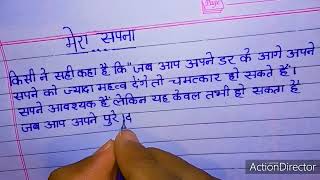 Page
मेरा सपना
किसी ने सही कहा है कि "जब आप अपने डर के आगे अपने
सपने को ज्यादा महत्व देंगे तो चमत्कार हो सकते हैं"।
सपने आवश्यक हैं लेकिन यह केवल तभी हो सकता है
जब आप अपने पुरे
ActionDirector